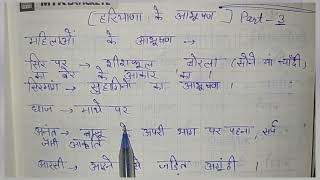 (हरियाणा के आभूषण) Part - 3
महिलाओं के आभूषण →
सिर पर → शीशफूल बोरला (सोने या चाँदी
का बेर के आकार का।
सिरमांग → सुहागिनों का आभूषण।
छाज → माथे पर
अनंत → बाजू के ऊपरी भाग पर पहना, सर्प
जैसी आकृति
आरसी → आइने से जड़ित अंगूठी।